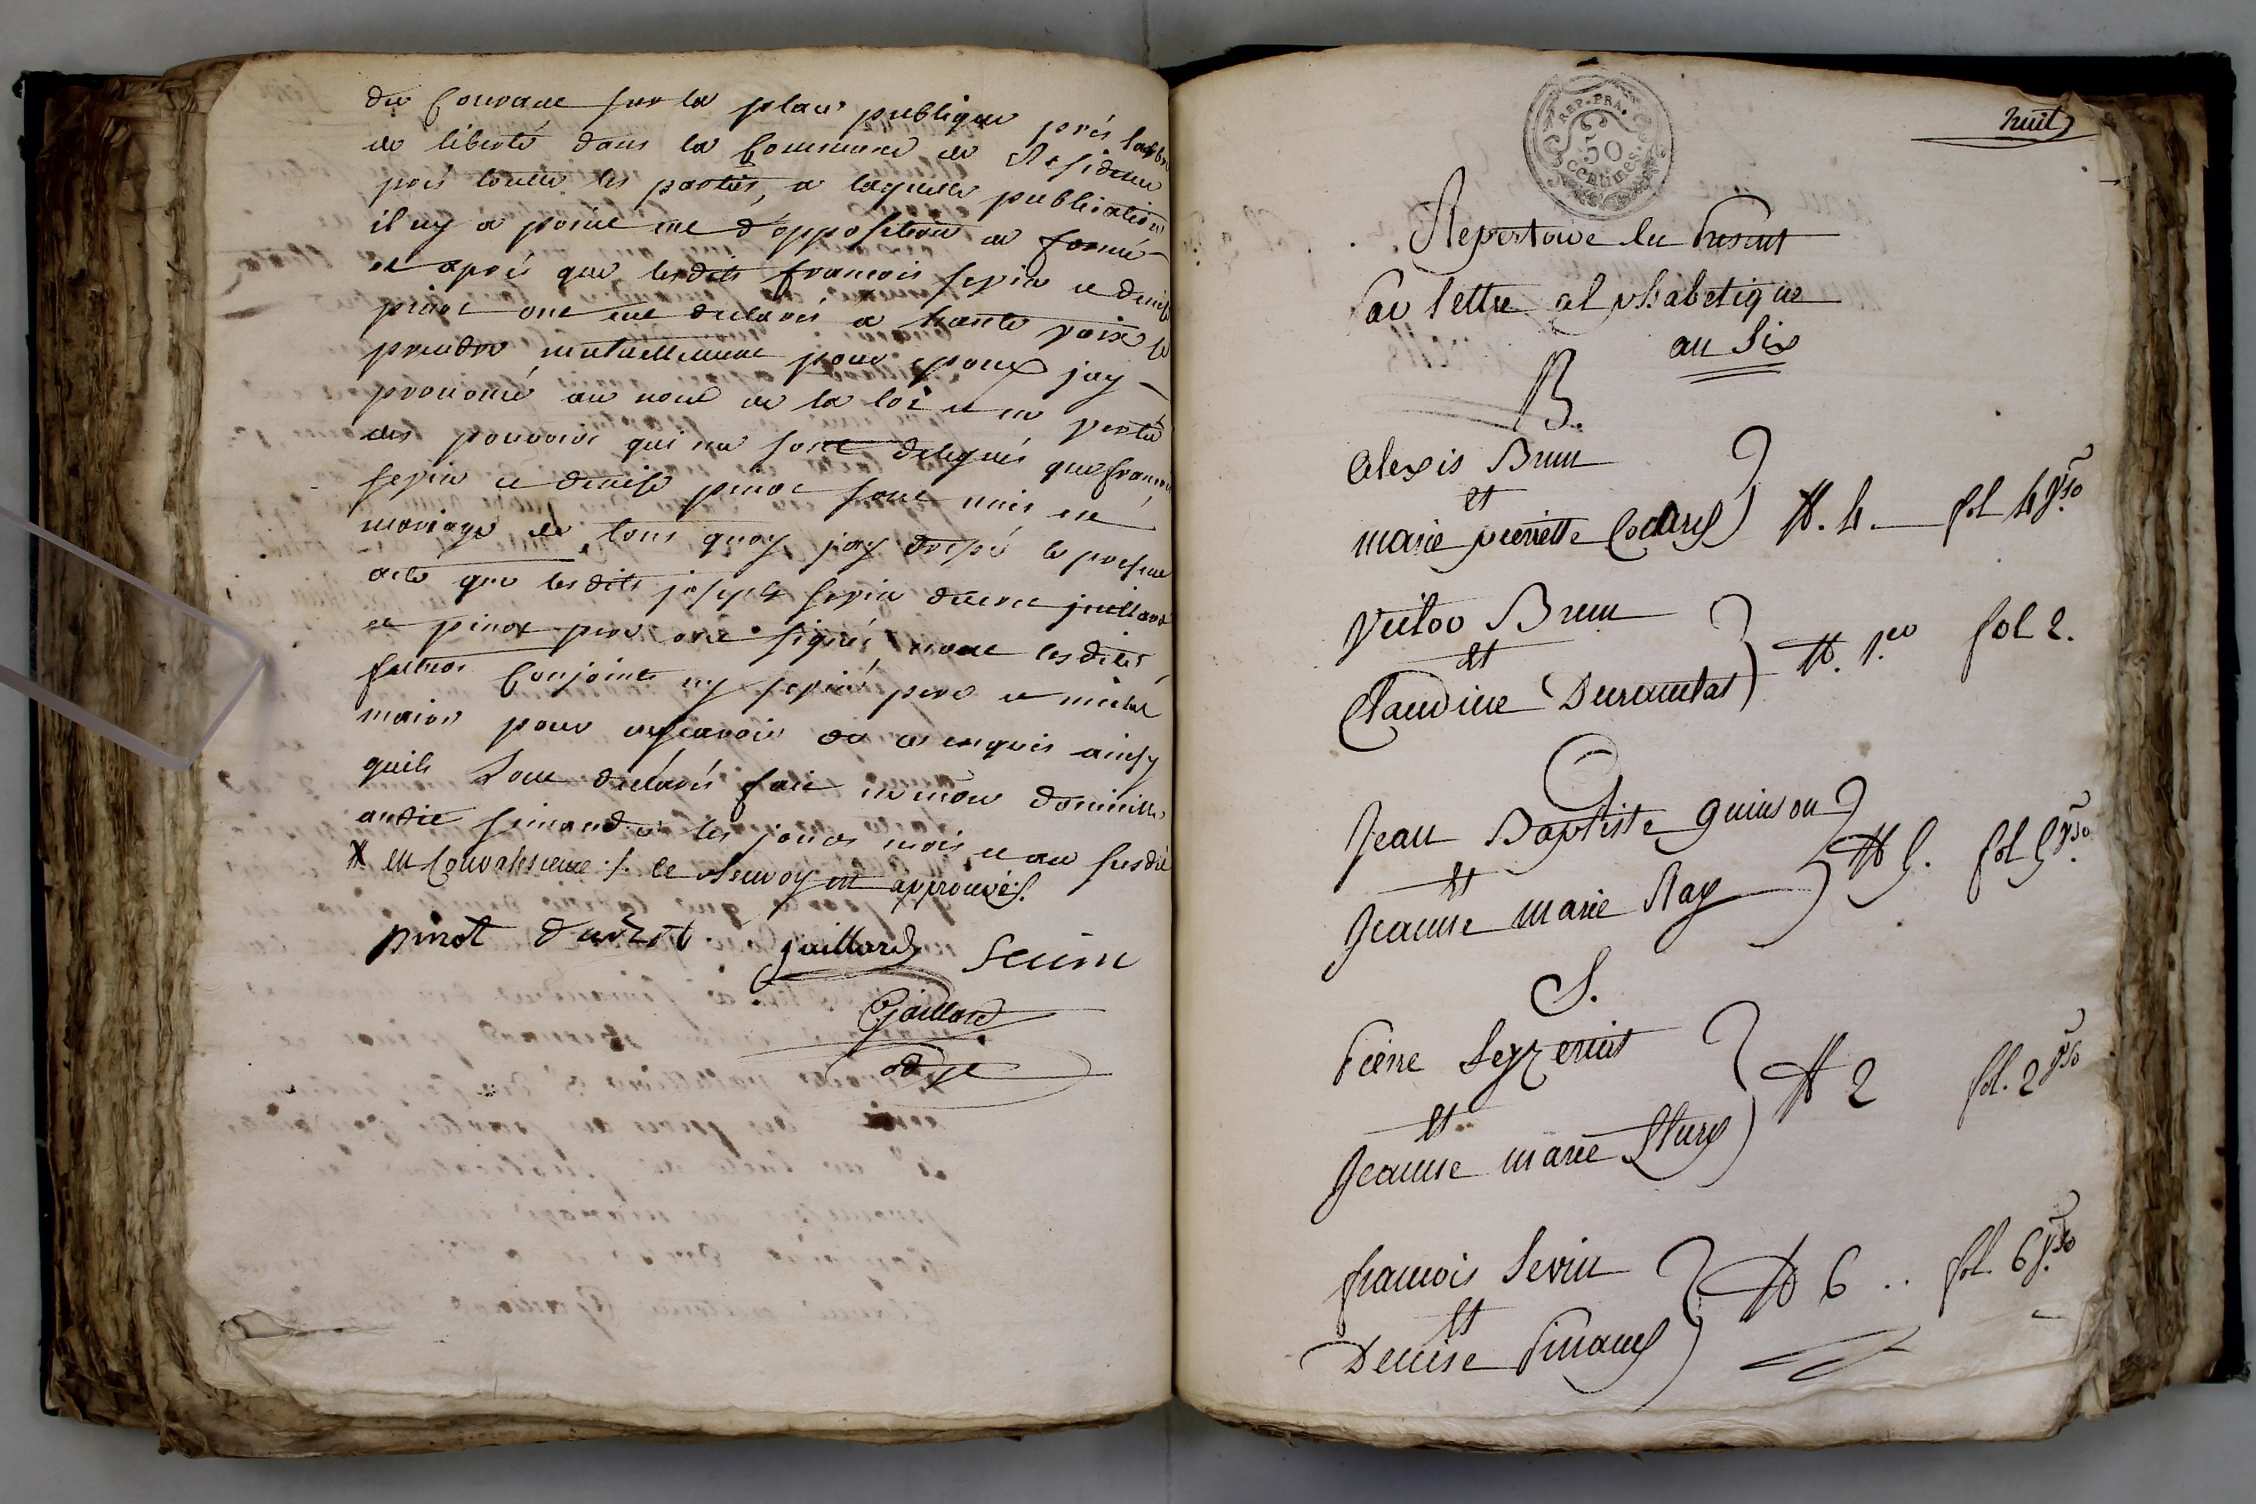 du Courant sur la place publique près larbre
de liberté dans la Commune de Residence
pour toutes les parties, a laquelle publication
il ny a point eut d'opposition de formé
et après que lesdits francois sevin et denise
pinot ont eut declarés a haute voix se
prendre mutuellement pour epoux jay
prononcé au nom de la loi et en vertu
des pouvoirs qui me sont delegués que francois
sevin et denise pinot sont unis en
mariage de tous quoy jay dressé le present
acte que lesdits joseph sevin gaillard
et pinot pere ont signés non lesdits
futurs Conjoints ny sevin pere et
pour ne scavoir de ce enquis ainsy
quils Sont declarés fait en mon domicille
audit simandre les jours mois et an susdit
en Convalescence /. le Renvoy est approuvé /.
pinot gaillard Sevin
Gaillard
huit
REP. FRA.
50
Centimes.
Repertoire du Present
Par lettre alphabetique
an Six
B.
Alexis Brun
et
marie pierrette Cochard N. 4. fol 4 vso
Victor Brun
et
Claudine Durand N. 1.er fol 2.
G
Jean Baptiste guinson
et
Jeanne marie Ray N 5. fol 5 vso
S.
Pierre
et
Jeanne marie N 2 fol. 2 vso
francois Sevin
et
Denise Pinaud N 6 .. fol. 6 vso